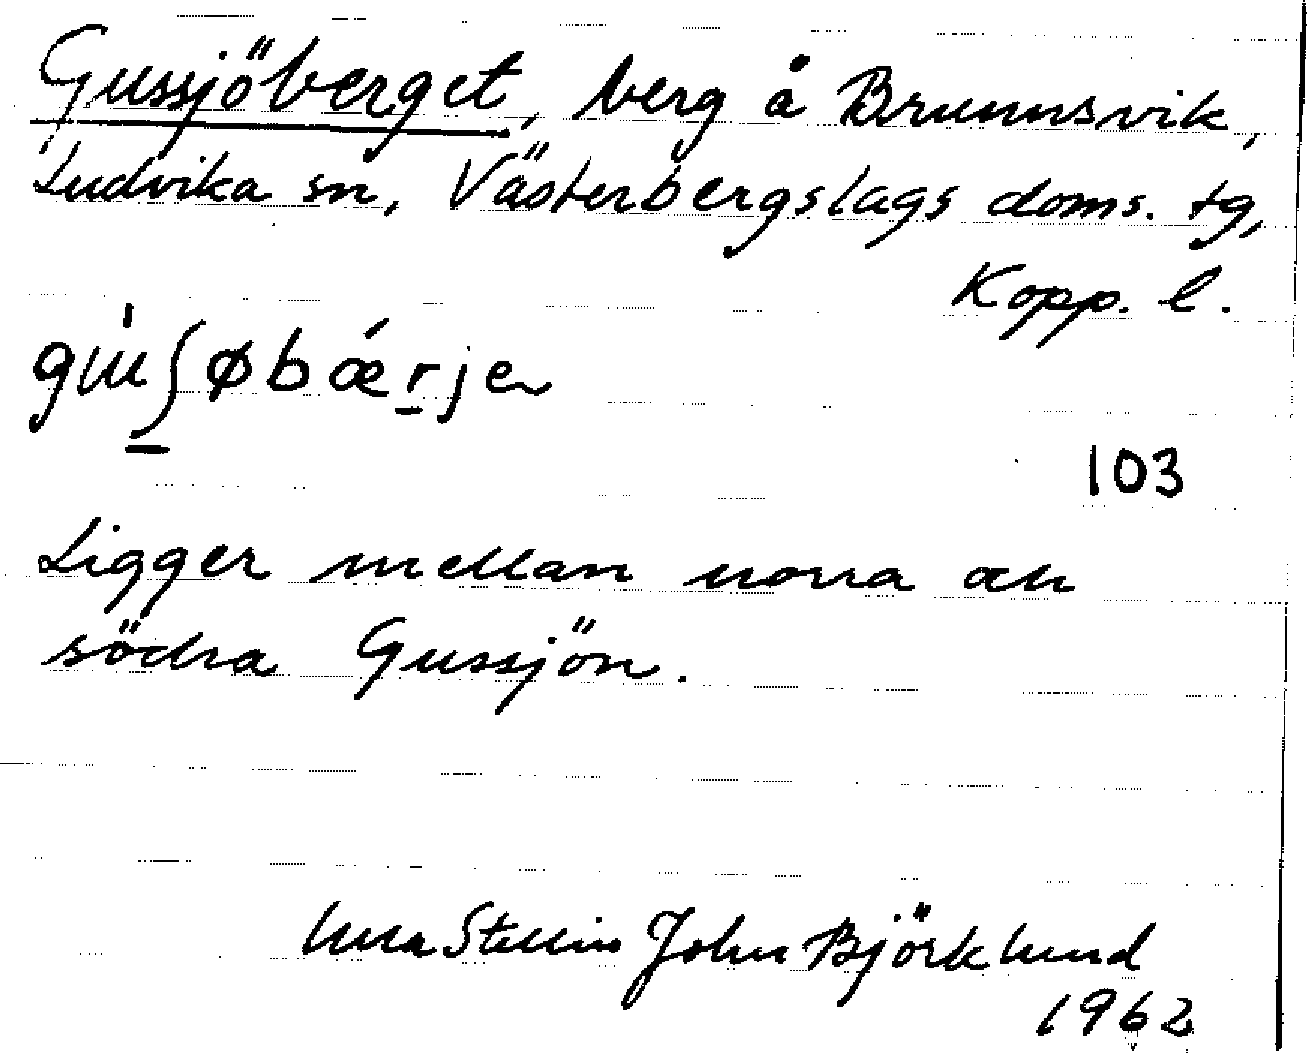 Gussjöberget, berg å Brunnsvik,
Ludvika sn, Västerbergslags doms. tg,
Kopp. l.
103
Ligger mellan norra och
södra Gussjön.
Stellin John Björklund
1962